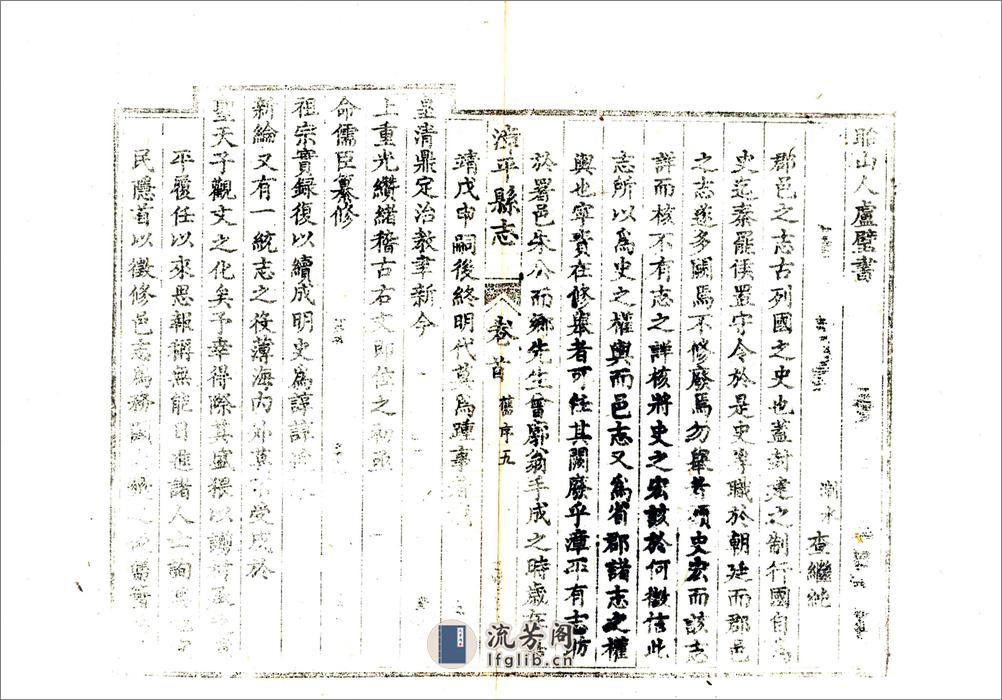 眙山人盧璧書
漸水 查繼純
郡邑之志古列國之史也蓋封建之制行國自爲
史迄秦罷侯置守令於是史專職於朝廷而郡邑
之志遂多闕焉不修廢焉勿舉考頌史宏而該志
詳而核不有志之詳核將史之宏該於何徵信此
志所以爲史之權輿而邑志又爲省郡諸志之權
輿也寧貴在修舉者可任其闕廢乎漳平有志昉
於署邑朱公而鄉先生曾廓翁手成之時歲在
漳平縣志 卷首 舊序五
靖戊申嗣後終明代莫爲踵事
皇清鼎定治教聿新今
上重光纘緒稽古右文即位之初
命儒臣纂修
祖宗實錄復以續成明史爲諄諄
新綸又有一統志之役薄海內外莫不受成於
聖天子觀文之化矣予幸得際其盛猥以
平覆任以來思報稱無能日進諸人士詢
民隱首以徵修邑志爲務
流芳阁
lfglib.cn